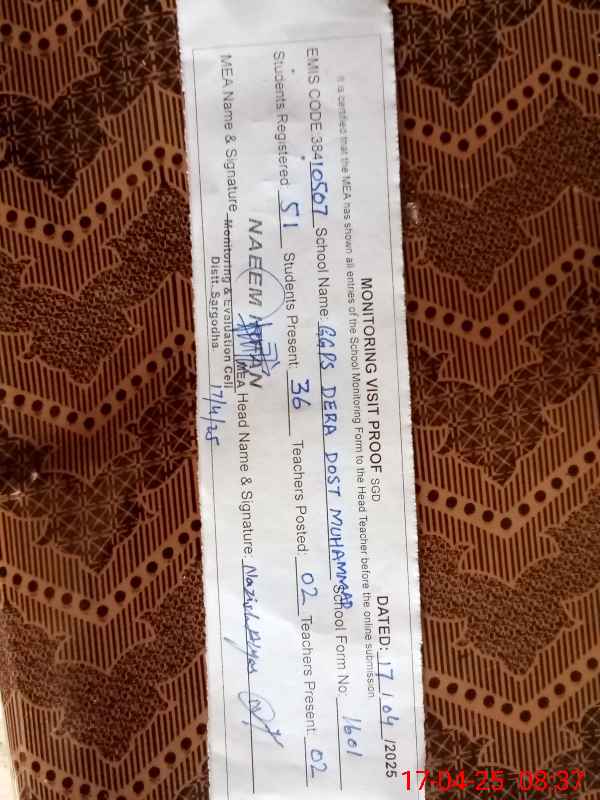 MONITORING VISIT PROOF SGD
DATED: 17/04/2025
It is certified that the MEA has shown all entries of the School Monitoring Form to the Head Teacher before the online submission
EMIS CODE 38410507 School Name: GGPS DERA DOST MUHAMMAD School Form No: 1601
Students Registered: 51 Students Present: 36 Teachers Posted: 02 Teachers Present: 02
MEA Name & Signature NAEEM Head Name & Signature: Nazish
Monitoring & Evaluation Cell
MEA
Distt. Sargodha
17/4/25
17-04-25 08:37